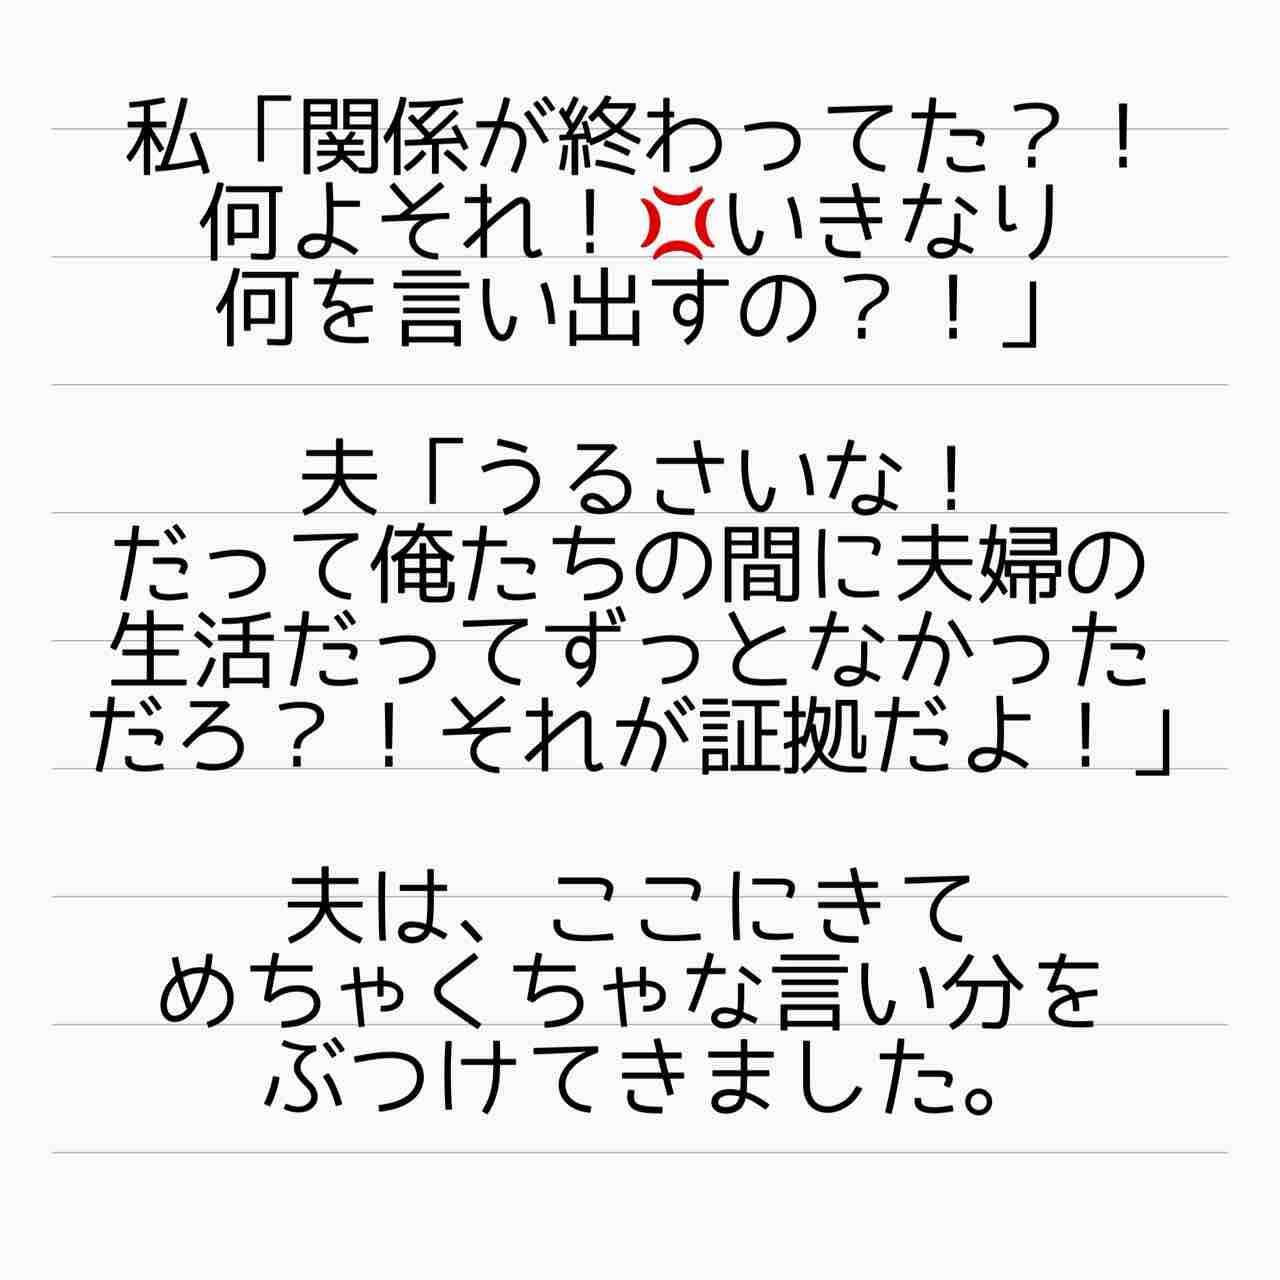 私「関係が終わってた？！
何よそれ！💢いきなり
何を言い出すの？！」
夫「うるさいな！
だって俺たちの間に夫婦の
生活だってずっとなかった
だろ？！それが証拠だよ！」
夫は、ここにきて
めちゃくちゃな言い分を
ぶつけてきました。